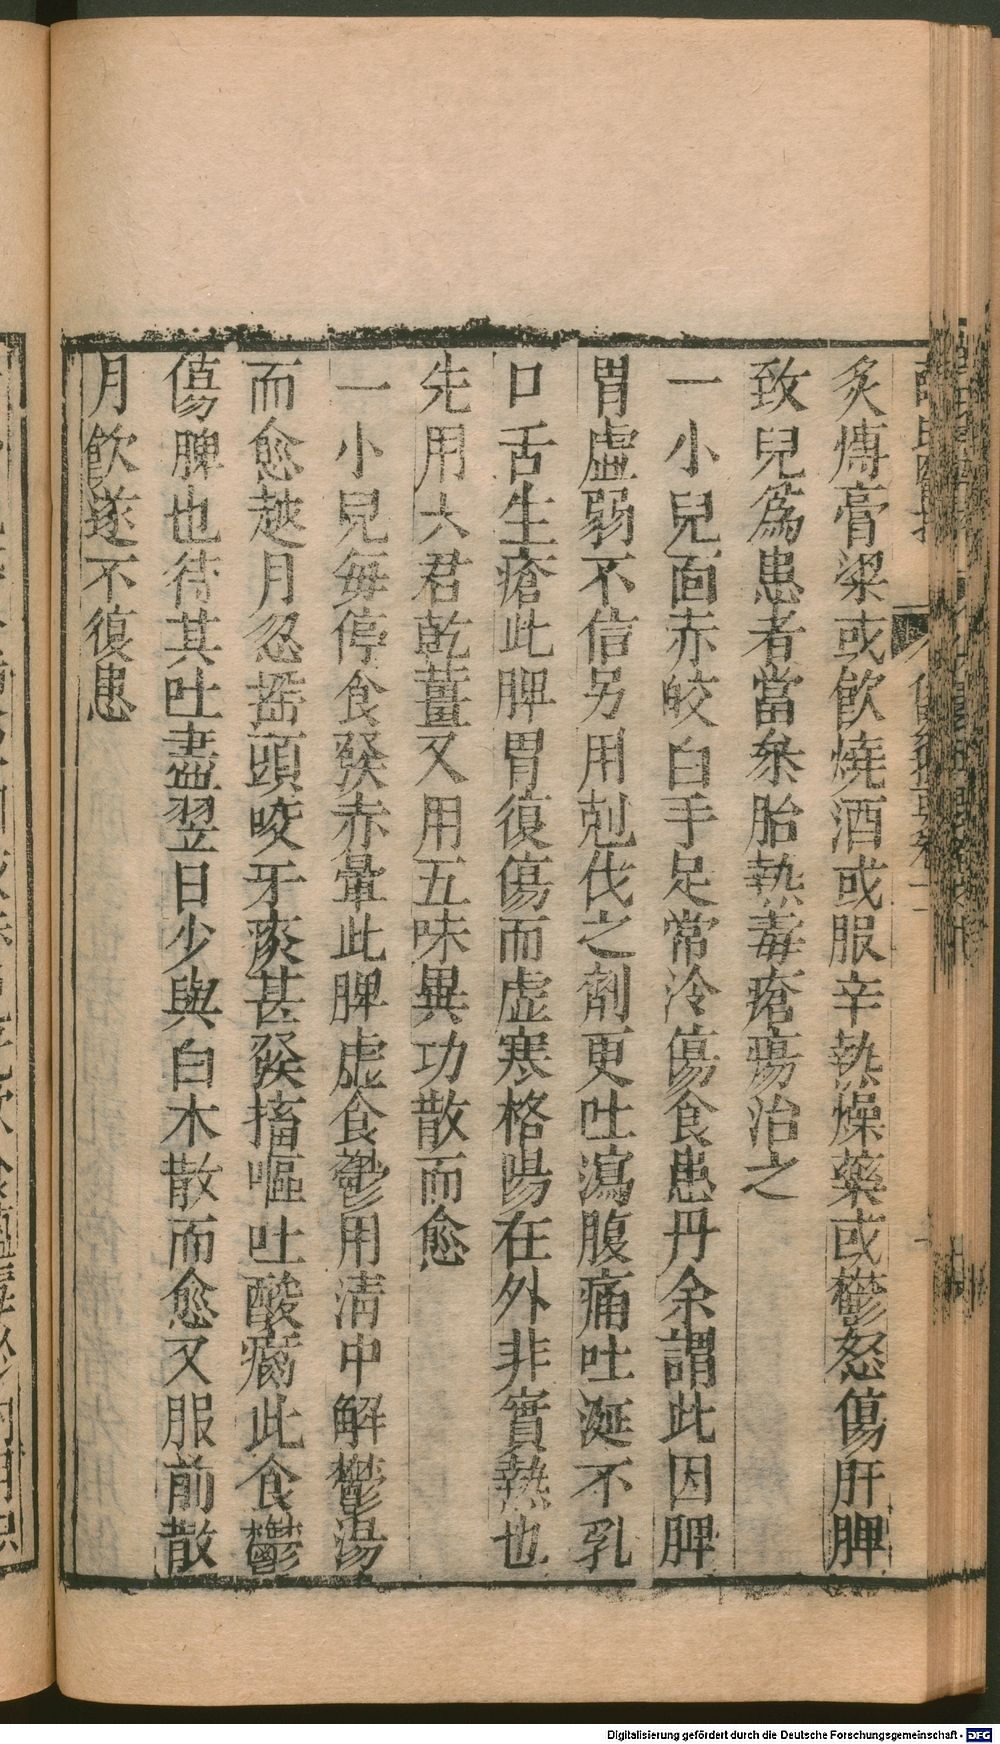 炙煿膏粱或飲燒酒或服辛熱燥藥或鬱怒傷肝脾
致兒為患者當叅胎熱毒瘡瘍治之
一小兒面赤皎白手足常冷傷食患丹余謂此因脾
胃虛弱不信另用尅伐之劑更吐瀉腹痛吐涎不乳
口舌生瘡此脾胃復傷而虛寒格陽在外非實熱也
先用六君乾薑又用五味異功散而愈
一小兒毎停食發赤暈此脾虛食鬱用清中解鬱湯
而愈越月忽搖頭咬牙痰甚發搐嘔吐酸腐此食鬱
傷脾也待其吐盡翌日少與白木散而愈又服前散
月餘遂不復患
Digitalisierung gefördert durch die Deutsche Forschungsgemeinschaft - DFG